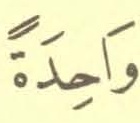 وَاحِدَةً